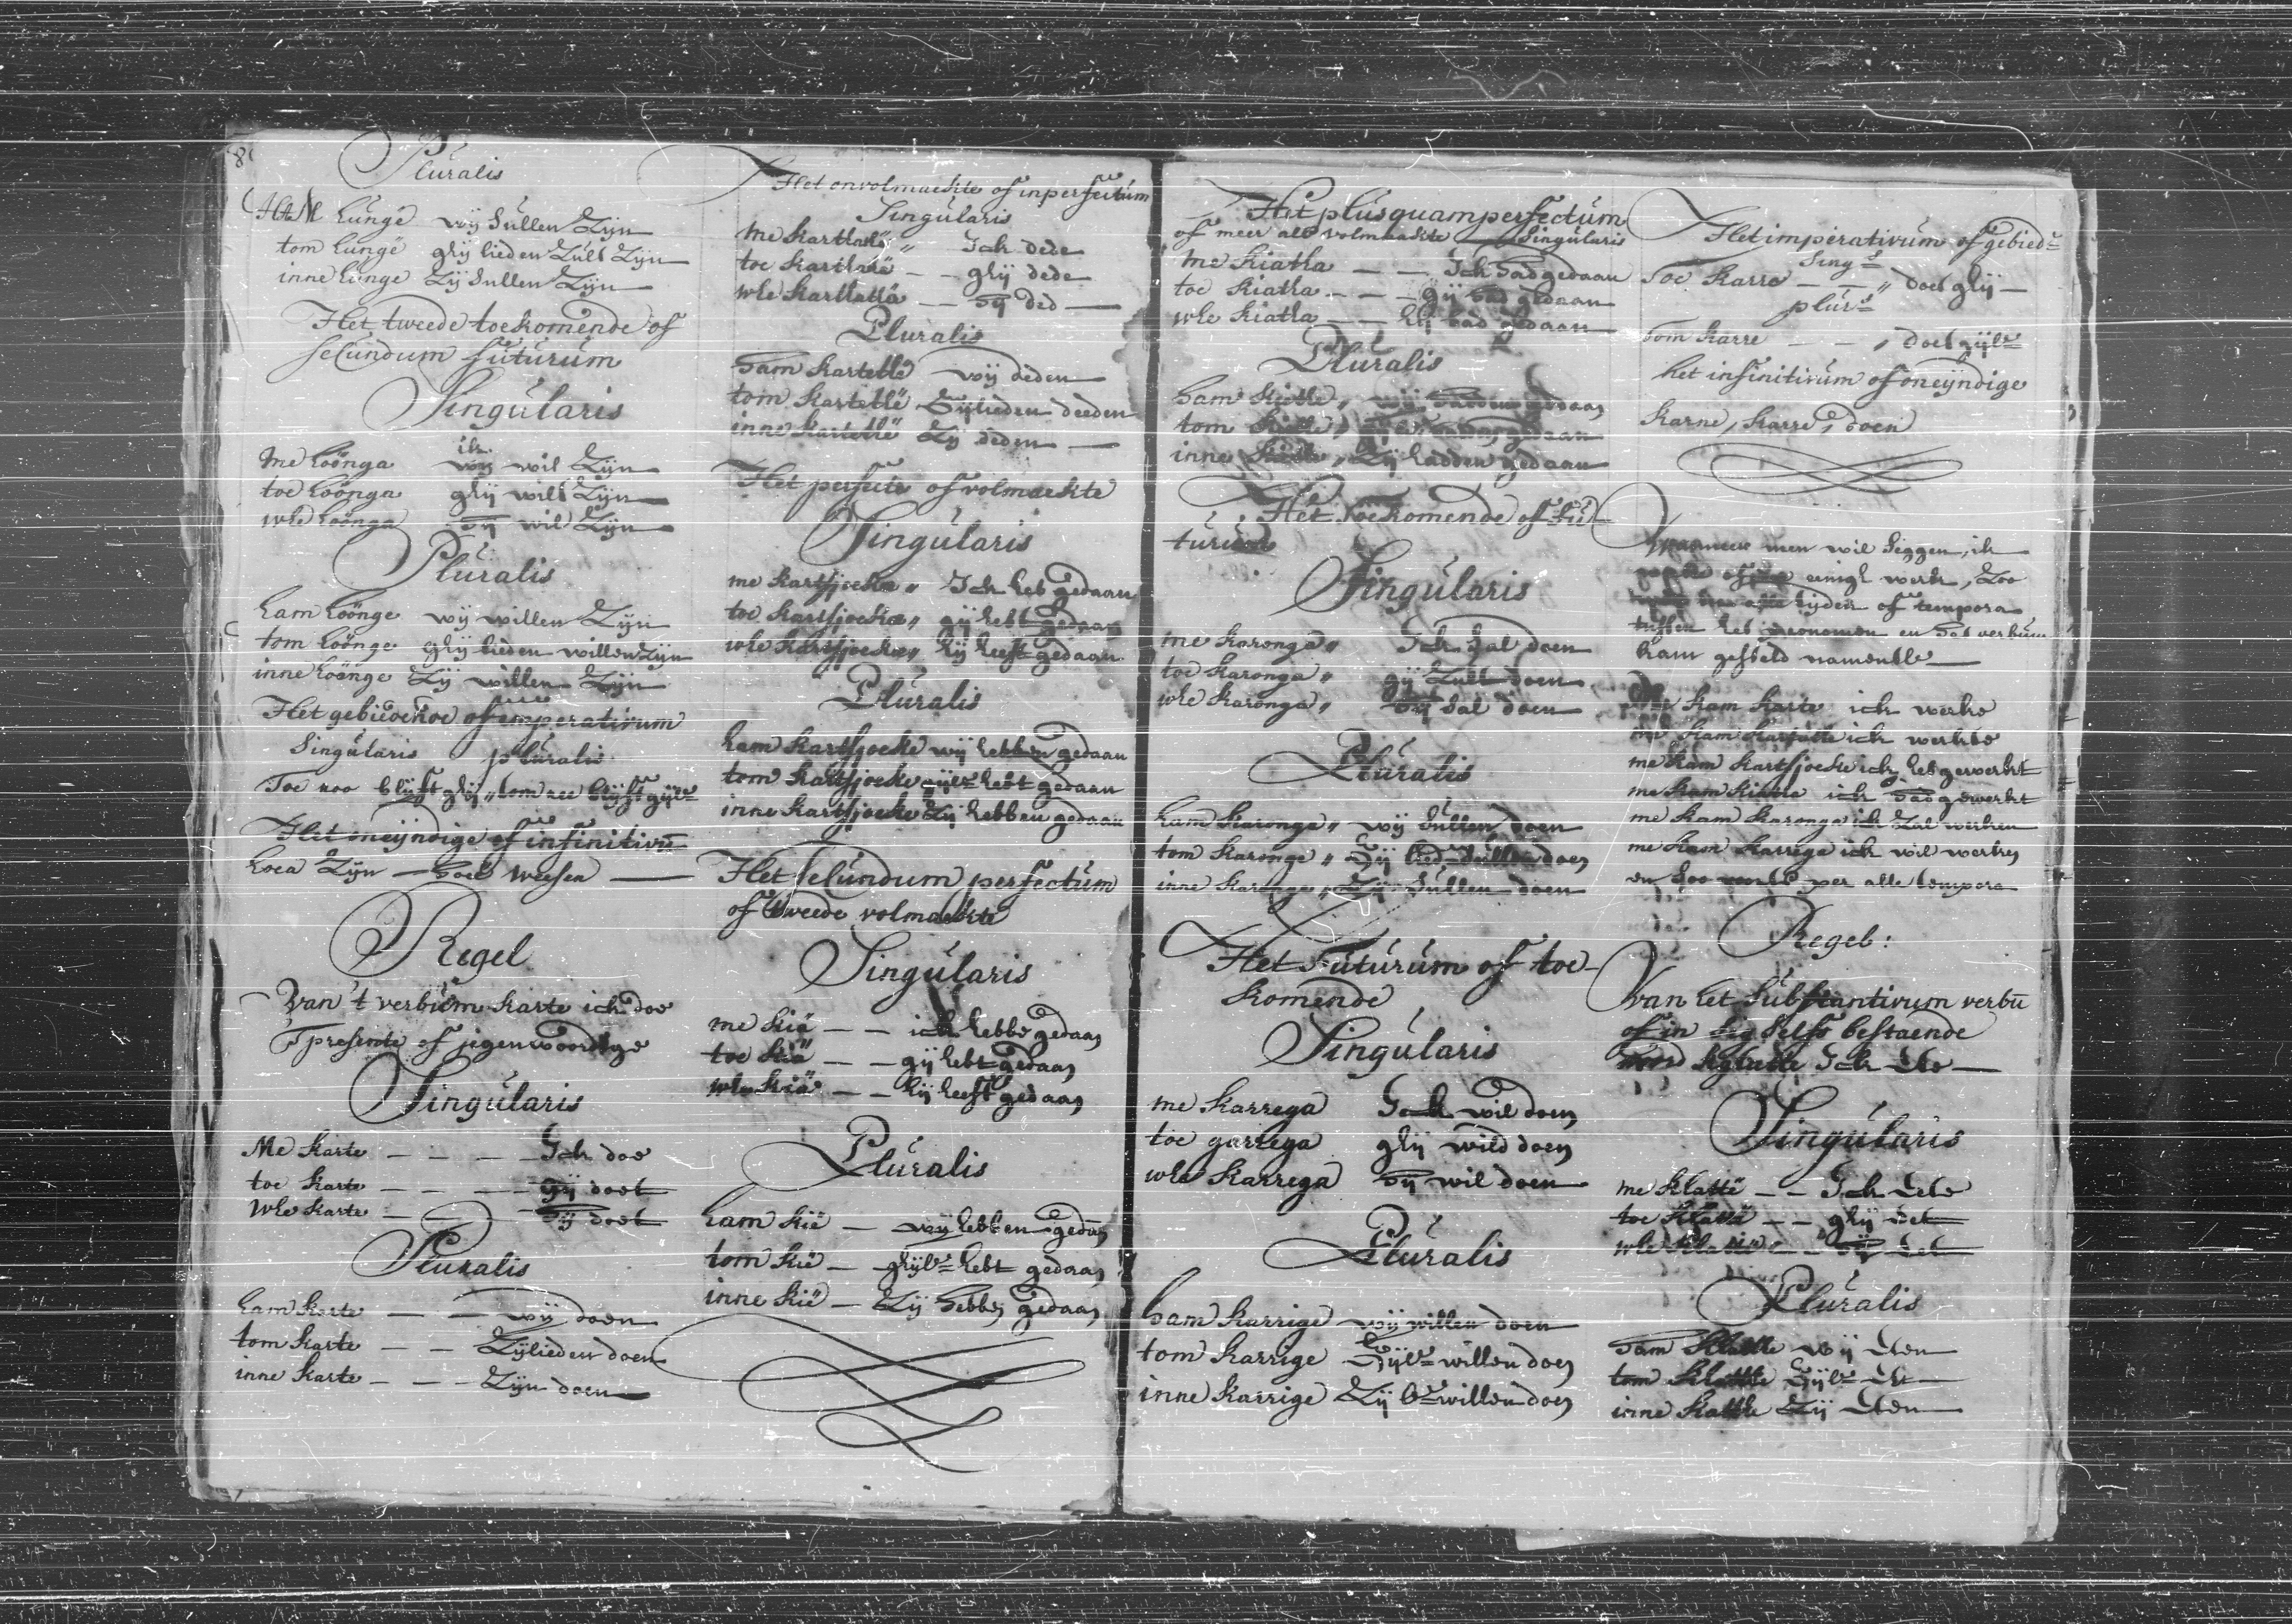 8
Pluralis
Ham hunge wij sullen zijn
tom hunge ghij lieden zult zijn
inne hunge zij sullen zijn
Het tweede toekomende of
secundum futurum
Singularis
me hoönga ik wil zijn
toe hoönga ghij wilt zijn
whe hoönga hij wil zijn
Pluralis
ham höönge wij willen zijn
tom höönge ghij lieden willen zijn
inne höönge zij willen zijn
Het gebiedende of imperativum
Singularis pluralis
Toe roo blijft ghij, tom ree blijft gijl:
Het oneijndige of infinitivũ
hoea zijn — hoea weesen —
Regel
Van 't verbum karte ick doe
T presente of jegenwoordige
Singularis
Me karte — — — Ick doe
toe karte — — — gij doet
whe karte — — — hij doet
Pluralis
ham karte — — wij doen
tom karte — — Zijlieden doen
inne karte — — Zijn doen
Het onvolmaekte of inperfectum
Singularis
me karthatä " Ick dede
toe karthatä — — ghij dede
whe karthatä — — hij ded —
Pluralis
ham kartethë wij deden
tom kartethë Gijlieden deeden
inne kartethë Zij deden —
Het perfecte of volmaekte
Singularis
me kartsjoeka " Ick heb gedaan
toe kartsjoeka " gij hebt gedaan
whe kartsjoeka " hij heeft gedaan
Pluralis
ham kartsjoeke wij hebben gedaan
tom kartsjoeke gijl: hebt gedaan
inne kartsjoeke Zij hebben gedaan
Het secundum perfectum
of tweede volmaekte
Singularis
me kiä — — ick hebbe gedaan
toe kiä — — gij hebt gedaan
whe kiä — — hij heeft gedaan
Pluralis
ham kië — wij hebben gedaan
tom kië — ghijl: hebt gedaan
inne kië — Zij hebben gedaan
Het plusquamperfectum
of meer als volmaakte Singularis
Me kiatha — — Ick had gedaan
toe kiatha — — gij had gedaan
whe kiatha — — hij had gedaan
Pluralis
ham kiethe " wij hadden gedaan
tom kiethe " gedaan
inne kiethe " Zij hadden gedaan
Het Toekomende of fu-
turum
Singularis
me karonga " Ick sal doen
toe karonga " gij zult doen
whe karonga " hij sal doen
Pluralis
ham karonge " wij sullen doen
tom karonge " Gij lied: sullen doen
inne karonge " Zij sullen doen
Het Futurum of toe-
komende
Singularis
me karrega Ick wil doen
toe garrega ghij wild doen
whe karrega hij wil doen
Pluralis
ham karrige wij willen doen
tom karrige Gijl: willen doen
inne karrige Zij l: willen doen
Het imperativum of gebied:
Sing:
Toe karre — — " doet ghij —
plur:
tom karre — — " doet gijl:
het infinitivum of oneijndige
karne, karre, doen
Wanneer men wil seggen, ik
einigh werk, zoo
tijden of tempora
tussen het pronomen en het verbum
kam gesteld namentlk —
Me kam karte ick werke
me kam ick werkte
me kam kartsjoeke ick heb gewerkt
me kam kiatha ick had gewerkt
me kam karonga ick zal werken
me kam karrega ick wil werken
en soo voorts per alle tempora
Regel:
Van het substantivum verbũ
of in sig selfs bestaende
Ick ete —
Singularis
me khattë — — Ick ete
toe khattë — — ghij eet
whe khattë — — hij eet
Pluralis
ham khatte wij eten
tom khatte Gijl: et —
inne khatte Zij eten